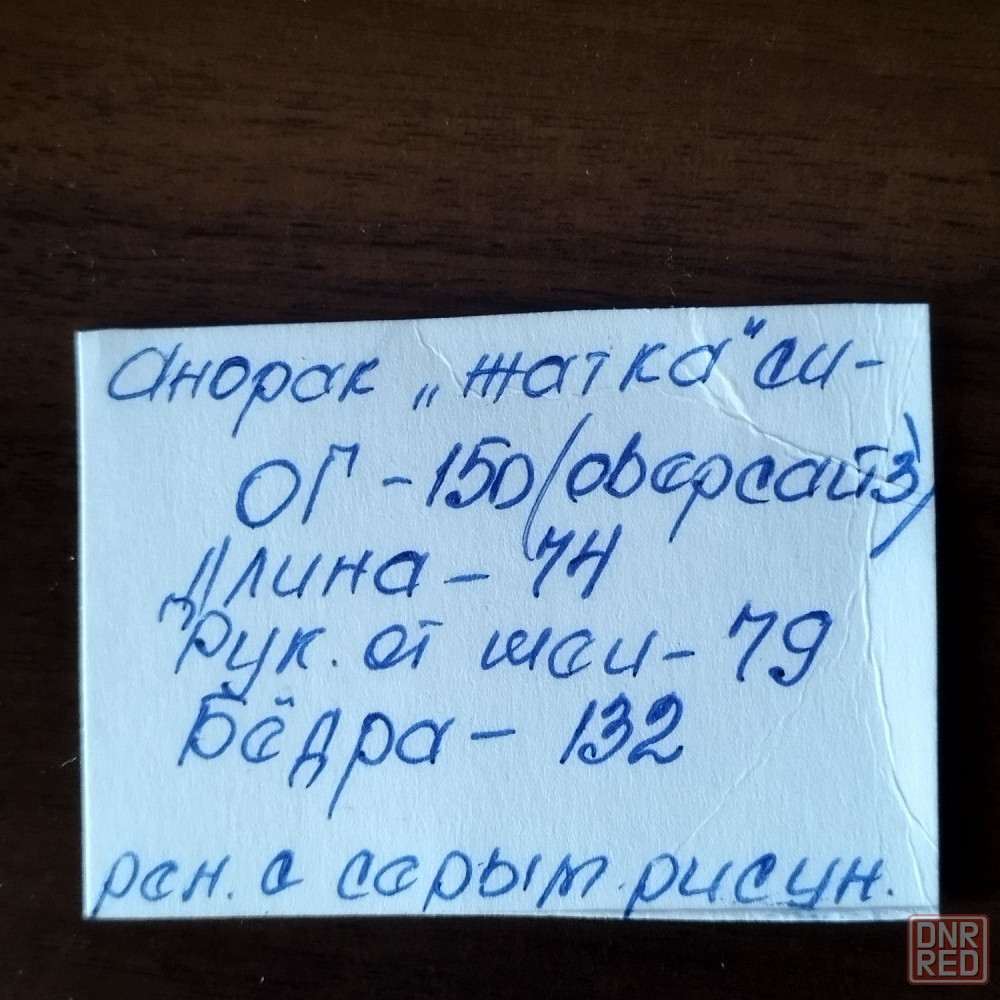 Анорак „жатка" си-
ОГ - 150 (оверсайз)
Длина - 74
Рук. от шеи - 79
Бёдра - 132
рен. с серым рисун.
DNR
RED